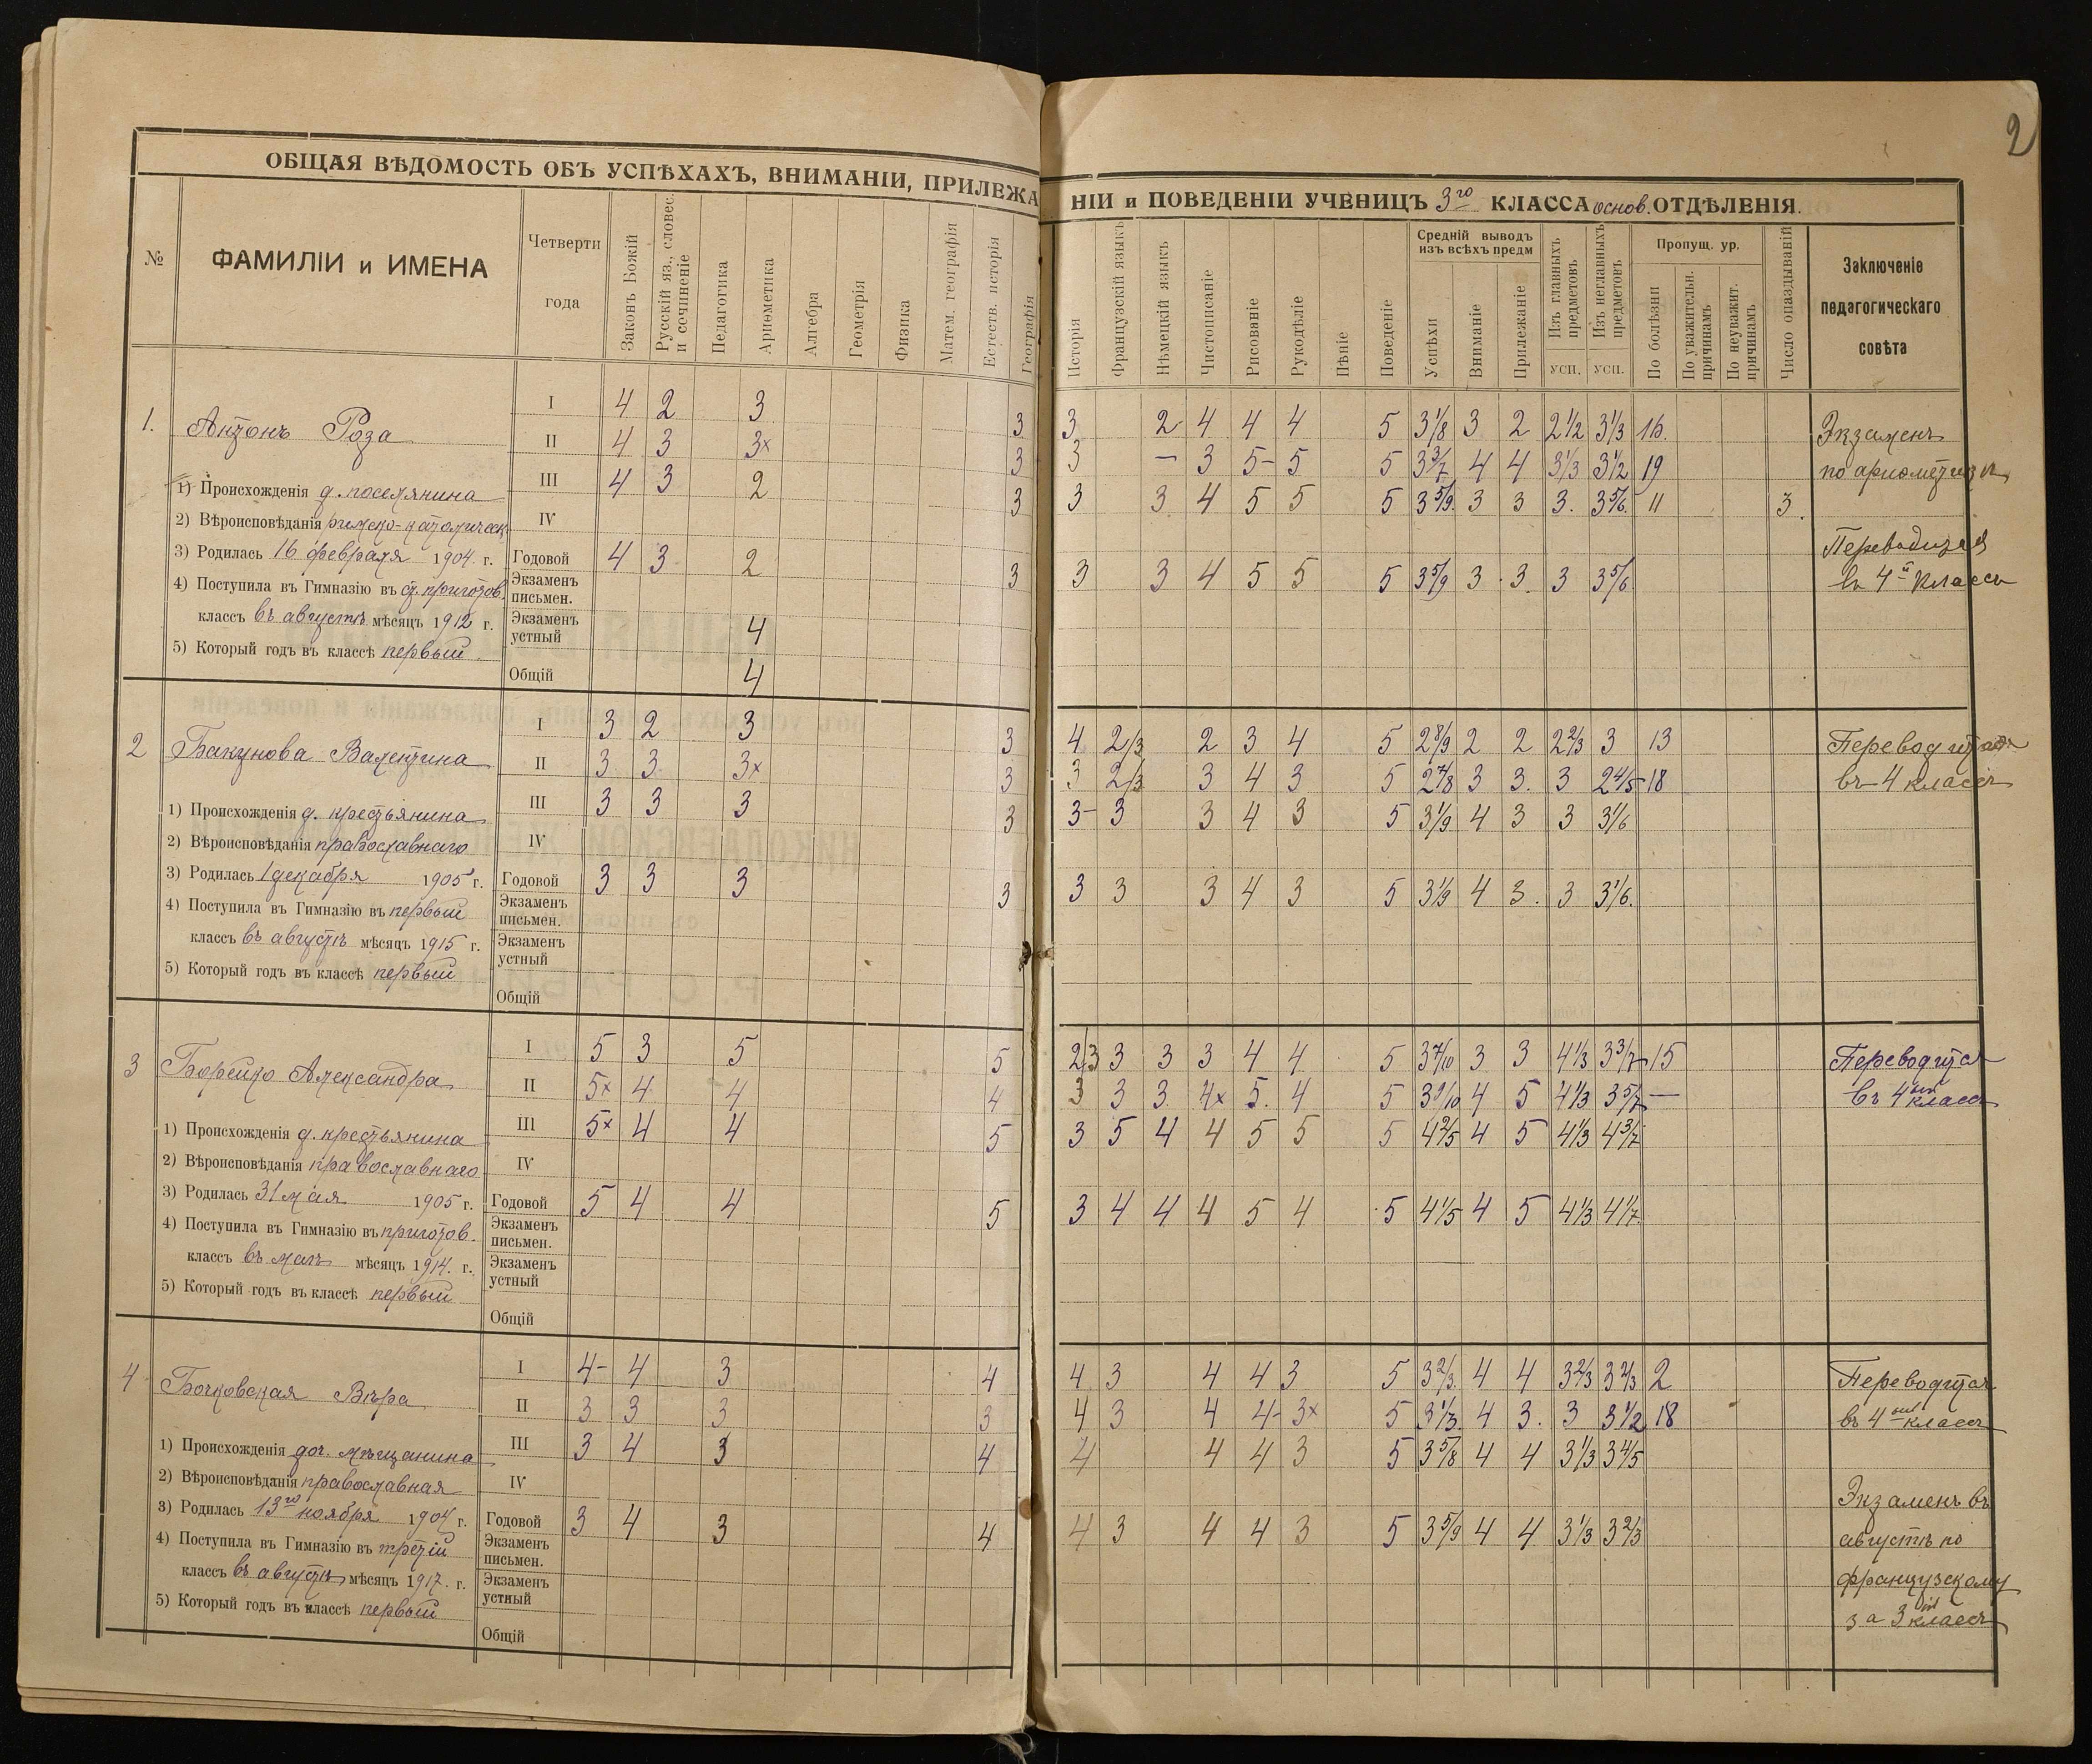 2
ОБЩАЯ ВѢДОМОСТЬ ОБЪ УСПѢХАХЪ, ВНИМАНІИ, ПРИЛЕЖА
НІИ и ПОВЕДЕНІИ УЧЕНИЦЪ 3го КЛАССА основ. ОТДѢЛЕНІЯ.
№
ФАМИЛІИ и ИМЕНА
Четверти
года
Законъ Божій
Русскій яз., словес.
и сочиненіе
Педагогика
Ариѳметика
Алгебра
Геометрія
Физика
Матем. географія
Естеств. исторія
Географія
Исторія
Французскій языкъ
Нѣмецкій языкъ
Чистописаніе
Рисованіе
Рукодѣліе
Пѣніе
Поведеніе
Средній выводъ
изъ всѣхъ предм
Успѣхи
Вниманіе
Прилежаніе
Изъ главныхъ
предметовъ
усп.
Изъ неглавныхъ
предметовъ
усп.
Пропущ. ур.
По болѣзни
По уважительн.
причинамъ
По неуважит.
причинамъ
Число опаздываній
Заключеніе
педагогическаго
совѣта
1.
Антонъ Роза
1) Происхожденія д. поселянина
2) Вѣроисповѣданія римско-католическ.
3) Родилась 16 февраля 1904. г.
4) Поступила въ Гимназію въ ст. приготов.
классъ въ августѣ мѣсяцъ 1912 г.
5) Который годъ въ классѣ первый
I 4 2 3 3 3 2 4 4 4 5 3 1/8 3 2 2 1/2 3 1/3 16.
II 4 3 3x 3 3 — 3 5- 5 5 3 3/7 4 4 3 1/3 3 1/2 19
III 4 3 2 3 3 3 4 5 5 5 3 5/9. 3 3 3. 3 5/6. 11 3.
IV
Годовой 4 3 2 3 3 3 4 5 5 5 3 5/9 3 3. 3 3 5/6
Экзаменъ
письмен.
Экзаменъ
устный 4
Общій 4
Экзаменъ
по ариѳметикѣ
Переводится
въ 4й классъ
2
Бакунова Валентина
1) Происхожденія д. крестьянина
2) Вѣроисповѣданія православнаго
3) Родилась 1 декабря 1905 г.
4) Поступила въ Гимназію въ первый
классъ въ августѣ мѣсяцъ 1915 г.
5) Который годъ въ классѣ первый
I 3 2 3 3 4 2/3 2 3 4 5 2 8/9 2 2 2 2/3 3 13
II 3 3 3x 3 3 2/3 3 4 3 5 2 7/8 3 3. 3 2 4/5 18
III 3 3 3 3 3- 3 3 4 3 5 3 1/9 4 3 3 3 1/6
IV
Годовой 3 3 3 3 3 3 3 4 3 5 3 1/9 4 3. 3 3 1/6.
Экзаменъ
письмен.
Экзаменъ
устный
Общій
Переводится
въ 4 классъ
3
Борейко Александра
1) Происхожденія д. крестьянина
2) Вѣроисповѣданія православнаго
3) Родилась 31 мая 1905 г.
4) Поступила въ Гимназію въ приготов.
классъ въ маѣ мѣсяцъ 1914. г.
5) Который годъ въ классѣ первый
I 5 3 5 5 2/3 3 3 3 4 4 5 3 7/10 3 3 4 1/3 3 3/7 15
II 5x 4 4 4 3 3 3. 4x 5. 4 5 3 9/10 4 5 4 1/3 3 5/7 —
III 5x 4 4 5 3 5 4 4 5 5 5 4 2/5 4 5 4 1/3 4 3/7
IV
Годовой 5 4 4 5 3 4 4 4 5 4 5 4 1/5 4 5 4 1/3 4 1/7
Экзаменъ
письмен.
Экзаменъ
устный
Общій
Переводится
въ 4ый классъ
4
Бочковская Вѣра
1) Происхожденія доч. мѣщанина
2) Вѣроисповѣданія православная
3) Родилась 13го ноября 1904 г.
4) Поступила въ Гимназію въ третій
классъ въ августѣ мѣсяцъ 1917. г.
5) Который годъ въ классѣ первый
I 4- 4 3 4 4 3 4 4 3 5 3 2/3. 4 4 3 2/3 3 2/3 2
II 3 3 3 3 4 3 4 4- 3x 5 3 1/3. 4 3. 3 3 1/2 18
III 3 4 3 4 4 4 4 3 5 3 5/8 4 4 3 1/3 3 4/5
IV
Годовой 3 4 3 4 4 3 4 4 3 5 3 5/9 4 4 3 1/3 3 2/3
Экзаменъ
письмен.
Экзаменъ
устный
Общій
Переводится
въ 4ый классъ
Экзаменъ въ
августѣ по
французскому
за 3ій классъ